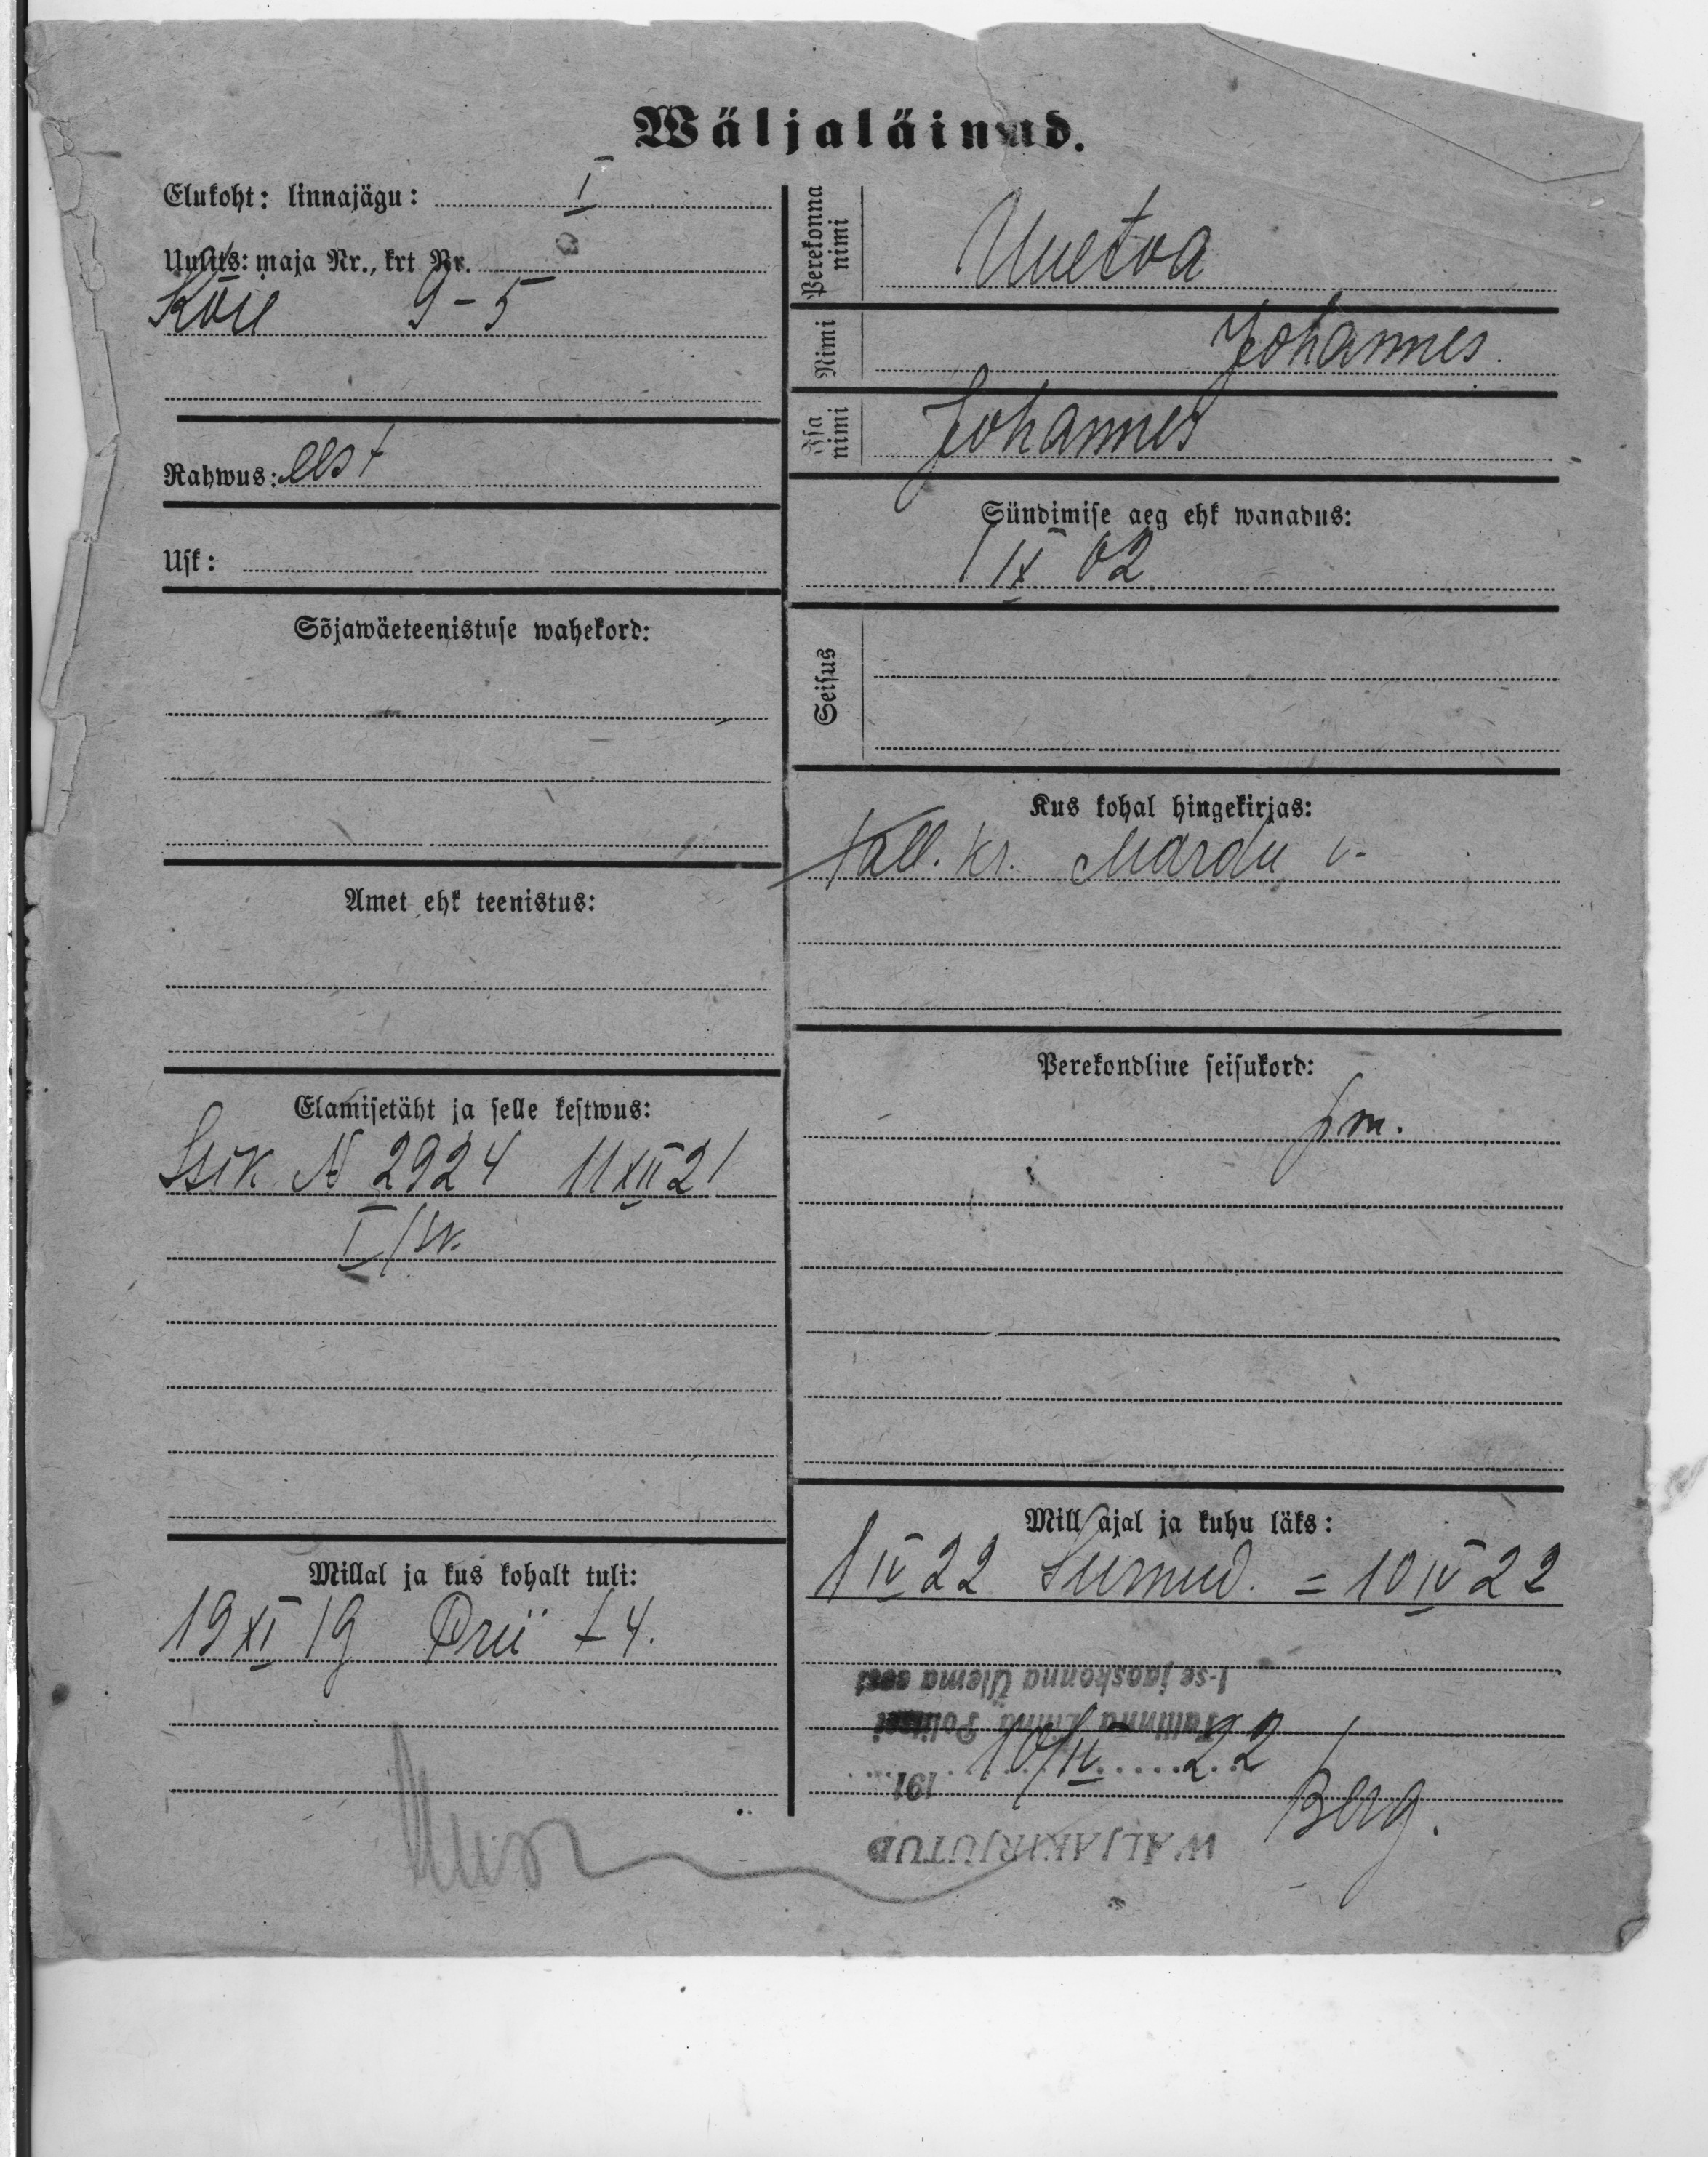 Wäljaläinud.
Elukoht: linnajägu: I
Uulits: maja Nr., krt Nr.
Köie 9-5
Rahwus: eest
Usk:
Sõjawäeteenistuse wahekord:
Amet ehk teenistus:
Elamisetäht ja selle kestwus:
N 2924 11 XII 21
I
Millal ja kus kohalt tuli:
19 XI 19
Perekonna nimi
Uuetoa
Nimi
Johannes.
Isa nimi
Johannes
Sündimise aeg ehk wanadus:
1 IX 02
Seisus
Kus kohal hingekirjas:
Tall. kr. Mardu v.
Perekondline seisukord:
Mill ajal ja kuhu läks:
1 IV 22 Surnud. = 10 IV 22
I-se jaoskonna Ülema eest
Tallinna Linna Politsei
10/IV 22
191
Berg.
WÄLJAKIRJUTUD